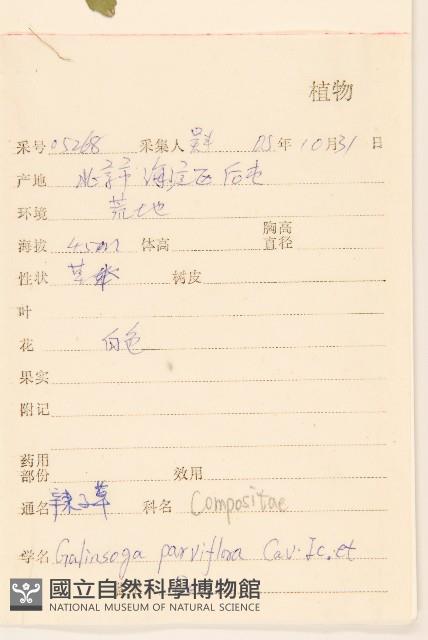 植物
采号 05268 采集人 05年10月31日
产地 北京市海淀区后屯
环境 荒地
海拔 45m 体高 胸高直径
性状 草本 树皮
叶
花 白色
果实
附记
药用部份 效用
通名 辣子草 科名 Compositae
学名 Galinsoga parviflora Cav. Ic. et
國立自然科學博物館
NATIONAL MUSEUM OF NATURAL SCIENCE